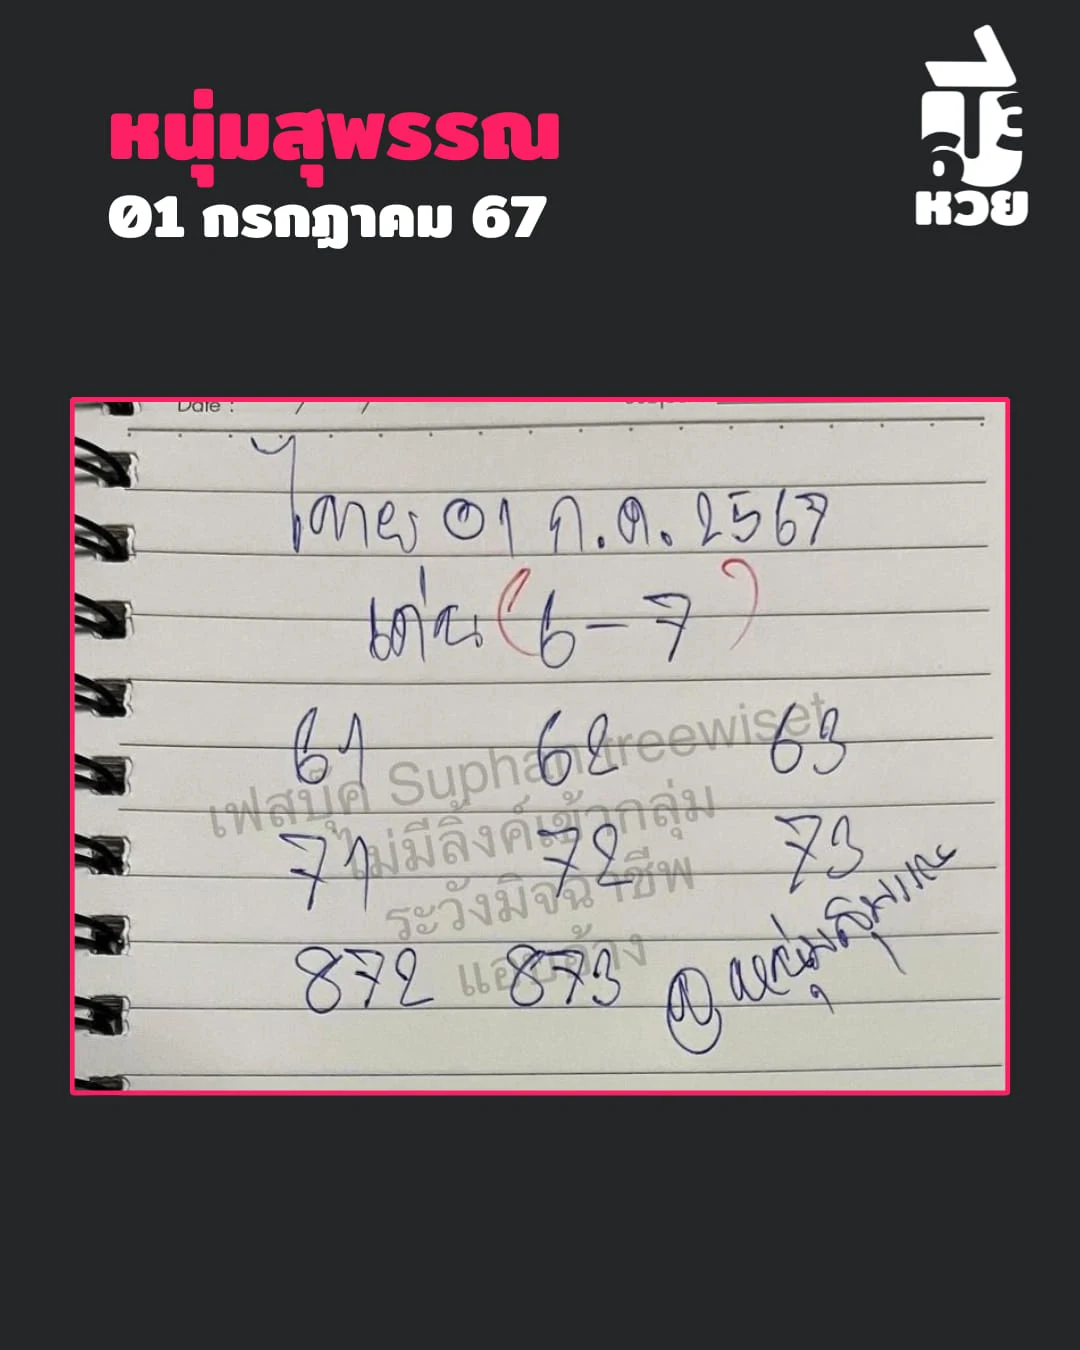 หนุ่มสุพรรณ
01 กรกฎาคม 67
หวย
Date : / /
ไทย 01 ก.ค. 2567
เด่น (6-7)
61 62 63
71 72 73
872 873
หนุ่มสุพรรณ
เฟสบุ๊ค Suphan treewiset
ไม่มีลิ้งค์เข้ากลุ่ม
ระวังมิจฉาชีพ
แอบอ้าง